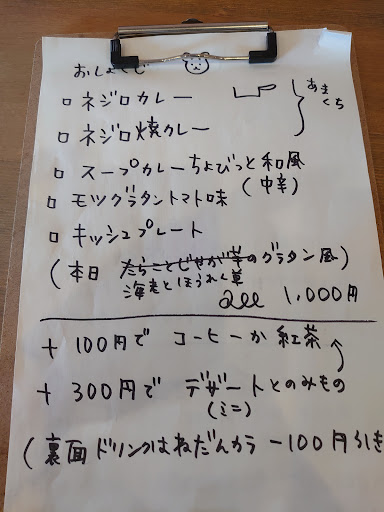 おしょくじ
□ ネジロカレー
□ ネジロ焼カレー
あまくち
□ スープカレーちょびっと和風
(中辛)
□ モツグラタントマト味
□ キッシュプレート
(本日 たらことじゃが芋のグラタン風)
海老とほうれん草
all 1,000円
+ 100円で コーヒーか紅茶
+ 300円で デザートとのみもの
(ミニ)
(裏面ドリンクはねだんカラ -100円引き